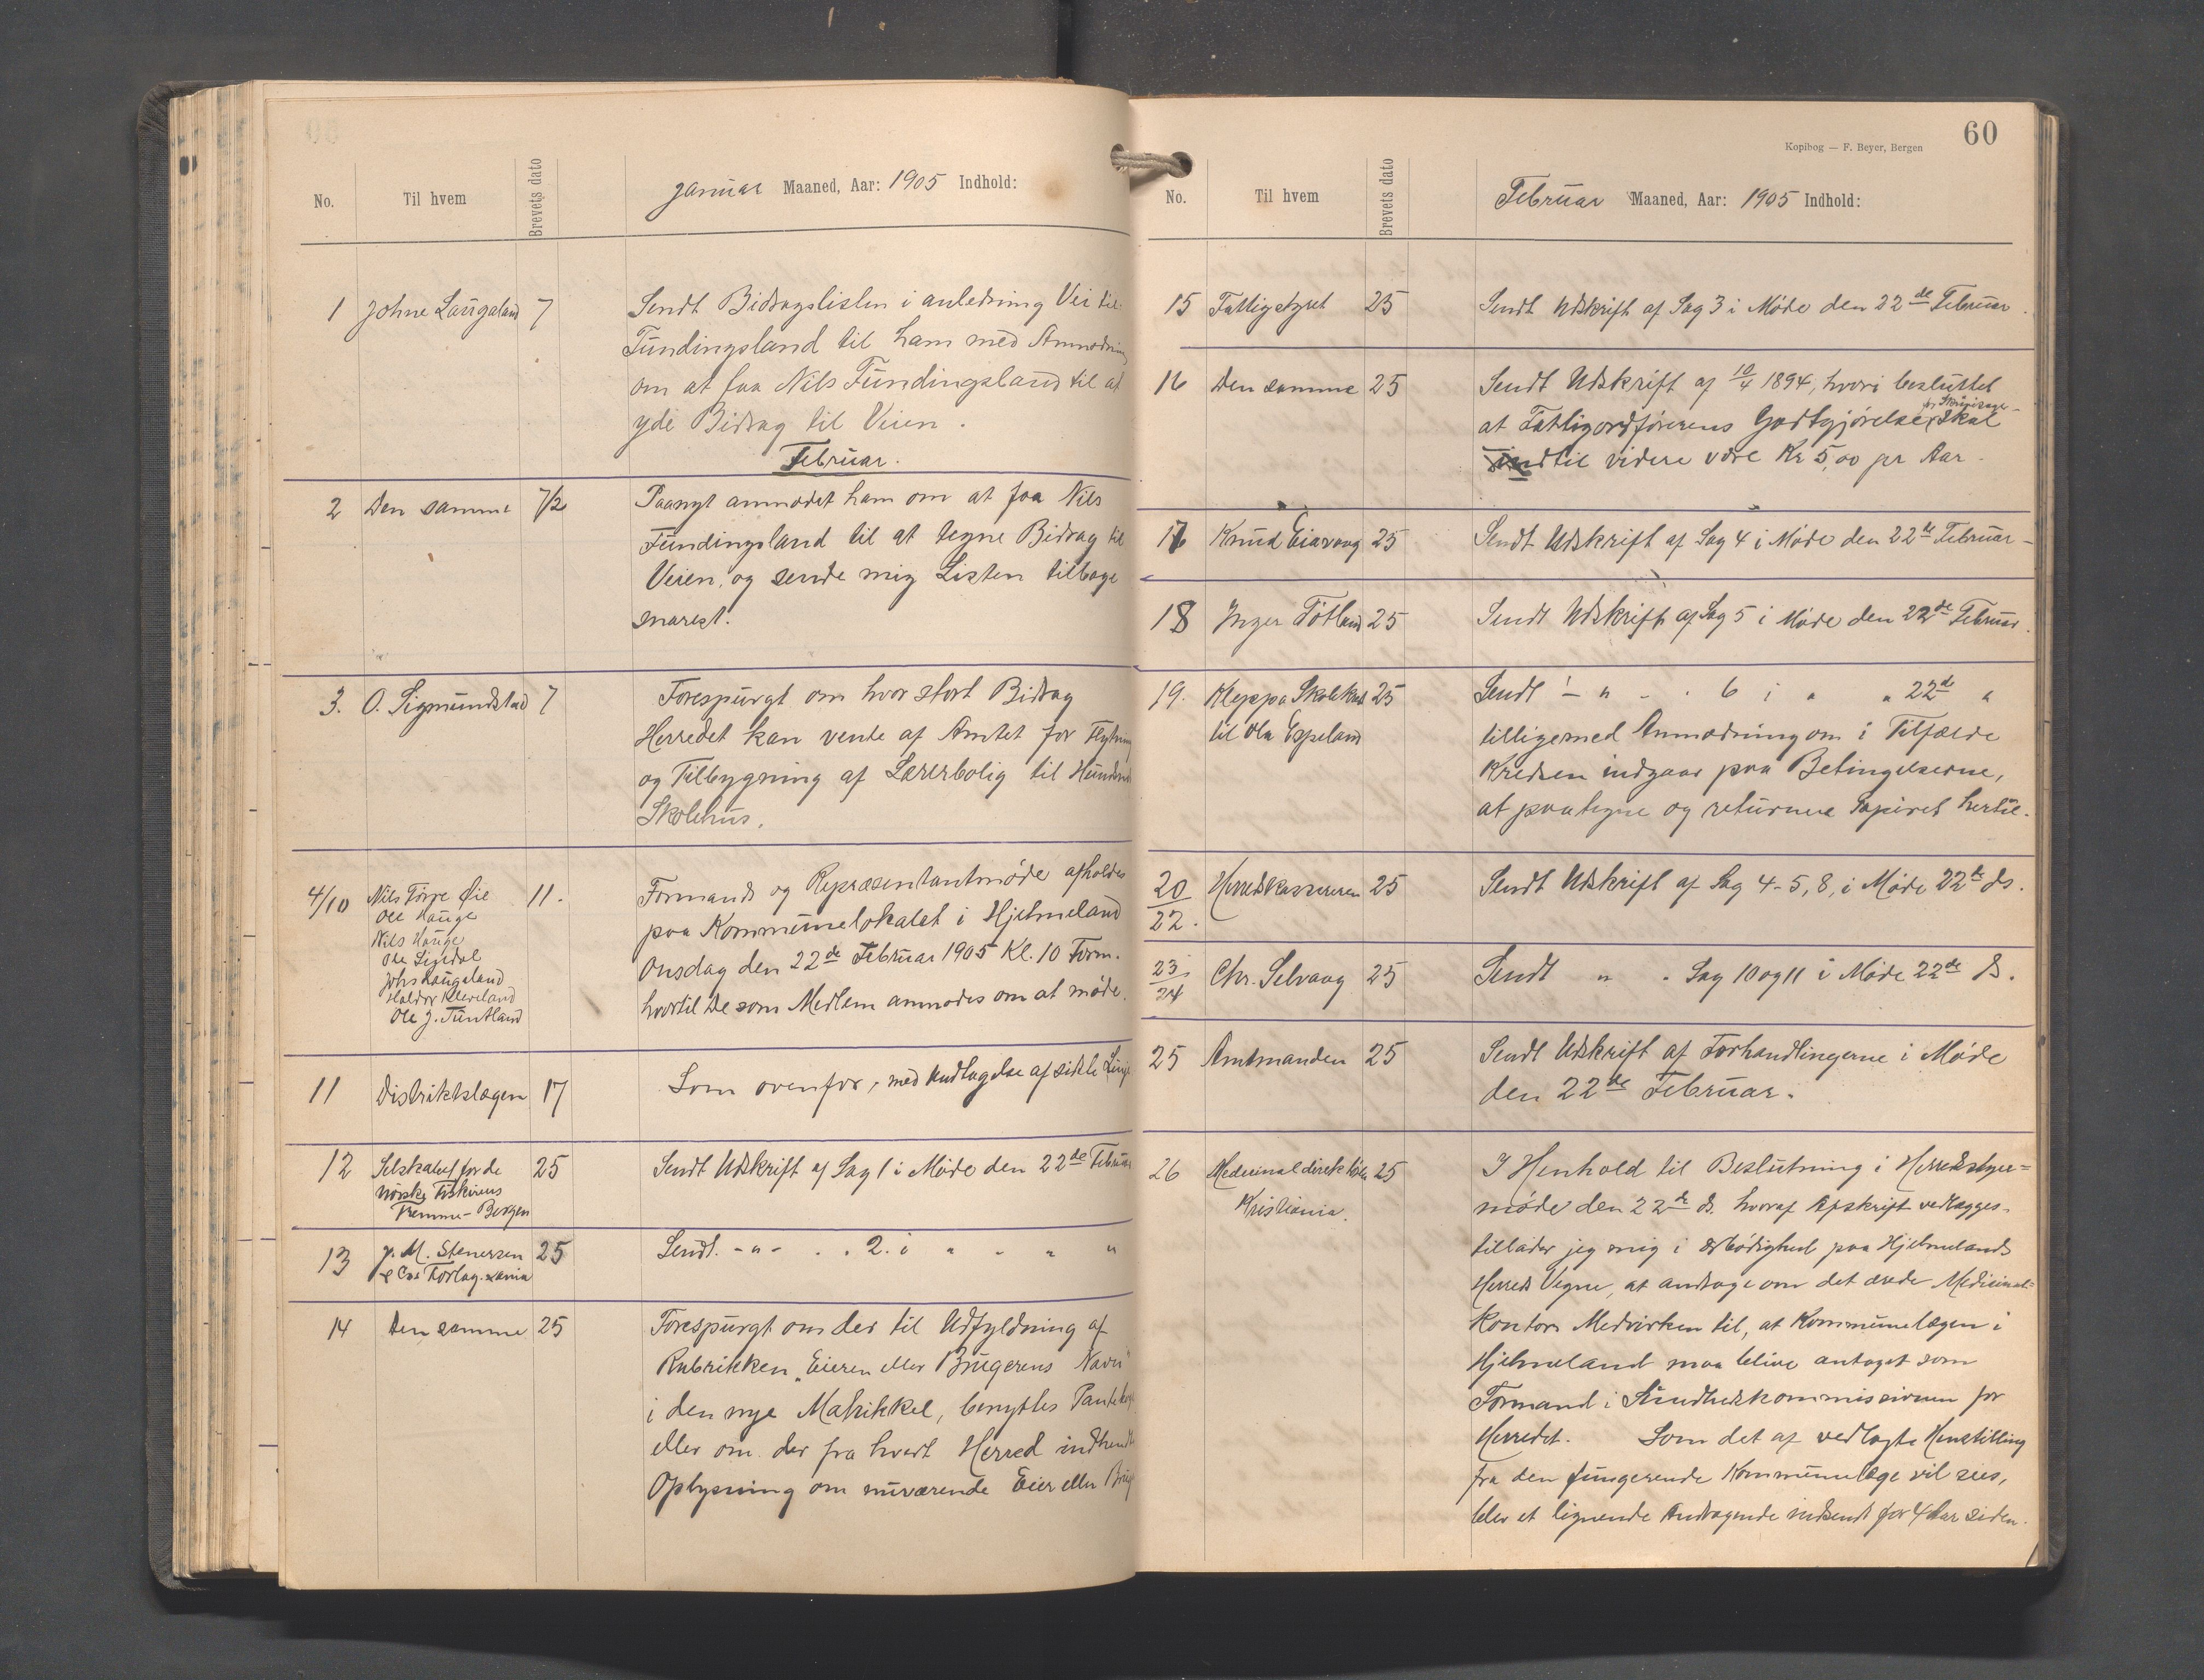 No. Til hvem Brevets dato Januar Maaned, Aar: 1905 Indhold:
1 Johne Laugaland 7 Sendt Bidragslisten i anledning Vei til
Fundingsland til ham med Anmodning
om at faa Nils Fundingsland til at
yde Bidrag til Veien.
Februar.
2 Den samme 7/2 Paanyt anmodet ham om at faa Nils
Fundingsland til at tegne Bidrag til
Veien, og sende mig Listen tilbage
snarest.
3. O. Sigmundstad 7 Forespurgt om hvor stort Bidrag
Herredet kan vente af Amtet for Flytning
og Tilbygning af Lærerbolig til
Skolehus.
4/10 Nils Tørje Øie 11. Formands og Repræsentantmøde afholdes
Ole Hauge
paa Kommunelokalet i Hjelmeland
Nils Hauge
Ola Sigdal
Onsdag den 22de Februar 1905 Kl. 10 Form.
Johs Laugaland
Haldor Kleiveland
hvortil De som Medlem anmodes om at møde.
Ole J. Tuntland
11 Distriktslægen 17 Som ovenfor, med Undtagelse af sidste Linje
12 Selskabet for de 25 Sendt Udskrift af Sag 1 i Møde den 22de Februar
norske Fiskeriers
Fremme - Bergen
13 J. M. Stenersen 25 Sendt - " - . . 2. i " - " "
& Cos Forlag. Xania
14 Den samme 25 Forespurgt om der til Udfyldning af
Rubrikken "Eieren eller Brugerens Navn"
i den nye Matrikkel, benyttes
eller om der fra hvert Herred
Oplysning om nuværende Eier eller
60
Kopibog — F. Beyer, Bergen
No. Til hvem Brevets dato Februar Maaned, Aar: 1905 Indhold:
15 Fattigstyret 25 Sendt Udskrift af Sag 3 i Møde den 22de Februar.
16 Den samme 25 Sendt Udskrift af 10/4 1894, hvori besluttet
at Fattigordførerens Godtgjørelse for Skrivesager skal
indtil videre være Kr 5,00 pr Aar.
17 Knud Eiavaag 25 Sendt Udskrift af Sag 4 i Møde den 22de Februar
18 Inger Tøtland 25 Sendt Udskrift af Sag 5 i Møde den 22de Februar.
19. Kleppa Skolekreds 25 Sendt - " - . 6 i " " 22de "
til Ola Espeland tilligemed Anmodning om i Tilfælde
Kredsen indgaar paa Betingelserne,
at paategne og returnere Papiret hertil.
20/22. Herredskassereren 25 Sendt Udskrift af Sag 4-5, 8, i Møde 22de ds.
23/24 Chr. Selvaag 25 Sendt " . Sag 10 og 11 i Møde 22de ds.
25 Amtmanden 25 Sendt Udskrift af Forhandlingerne i Møde
den 22de Februar.
26 Medicinaldirektøren 25 I Henhold til Beslutning i Herredsstyre=
Kristiania.
møde den 22de ds. hvoraf Afskrift vedlægges,
tillader jeg mig i Ærbødighed paa Hjelmelands
Herreds Vegne, at andrage om det ærede Medicinal=
kontors Medvirken til, at Kommunelægen i
Hjelmeland maa blive antaget som
Formand i Sundhedskommissionen for
Herredet. Som det af vedlagte Henstilling
fra den fungerende Kommunelæge vil sees,
blev et lignende Andragende indsendt for 4 Aar siden.